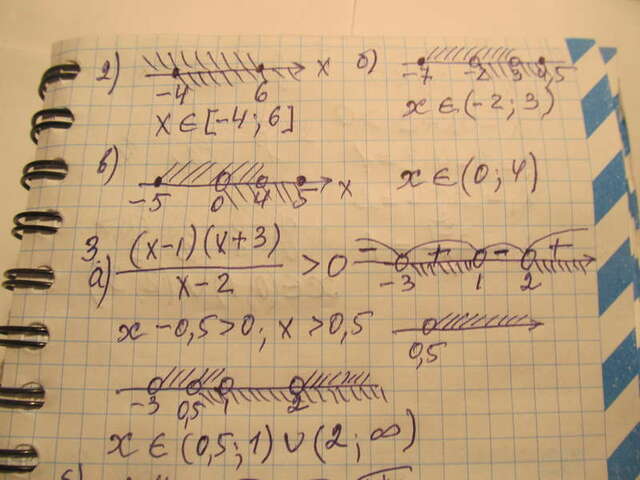 2) -4 6 x б) -7 -2 3 4,5
x ∈ [-4; 6] x ∈ (-2; 3)
в) -5 0 4 5 x x ∈ (0; 4)
3.
а) (x-1)(x+3) / x-2 > 0 - + - + -3 1 2
x - 0,5 > 0; x > 0,5 0,5
-3 0,5 1 2
x ∈ (0,5; 1) ∪ (2; ∞)